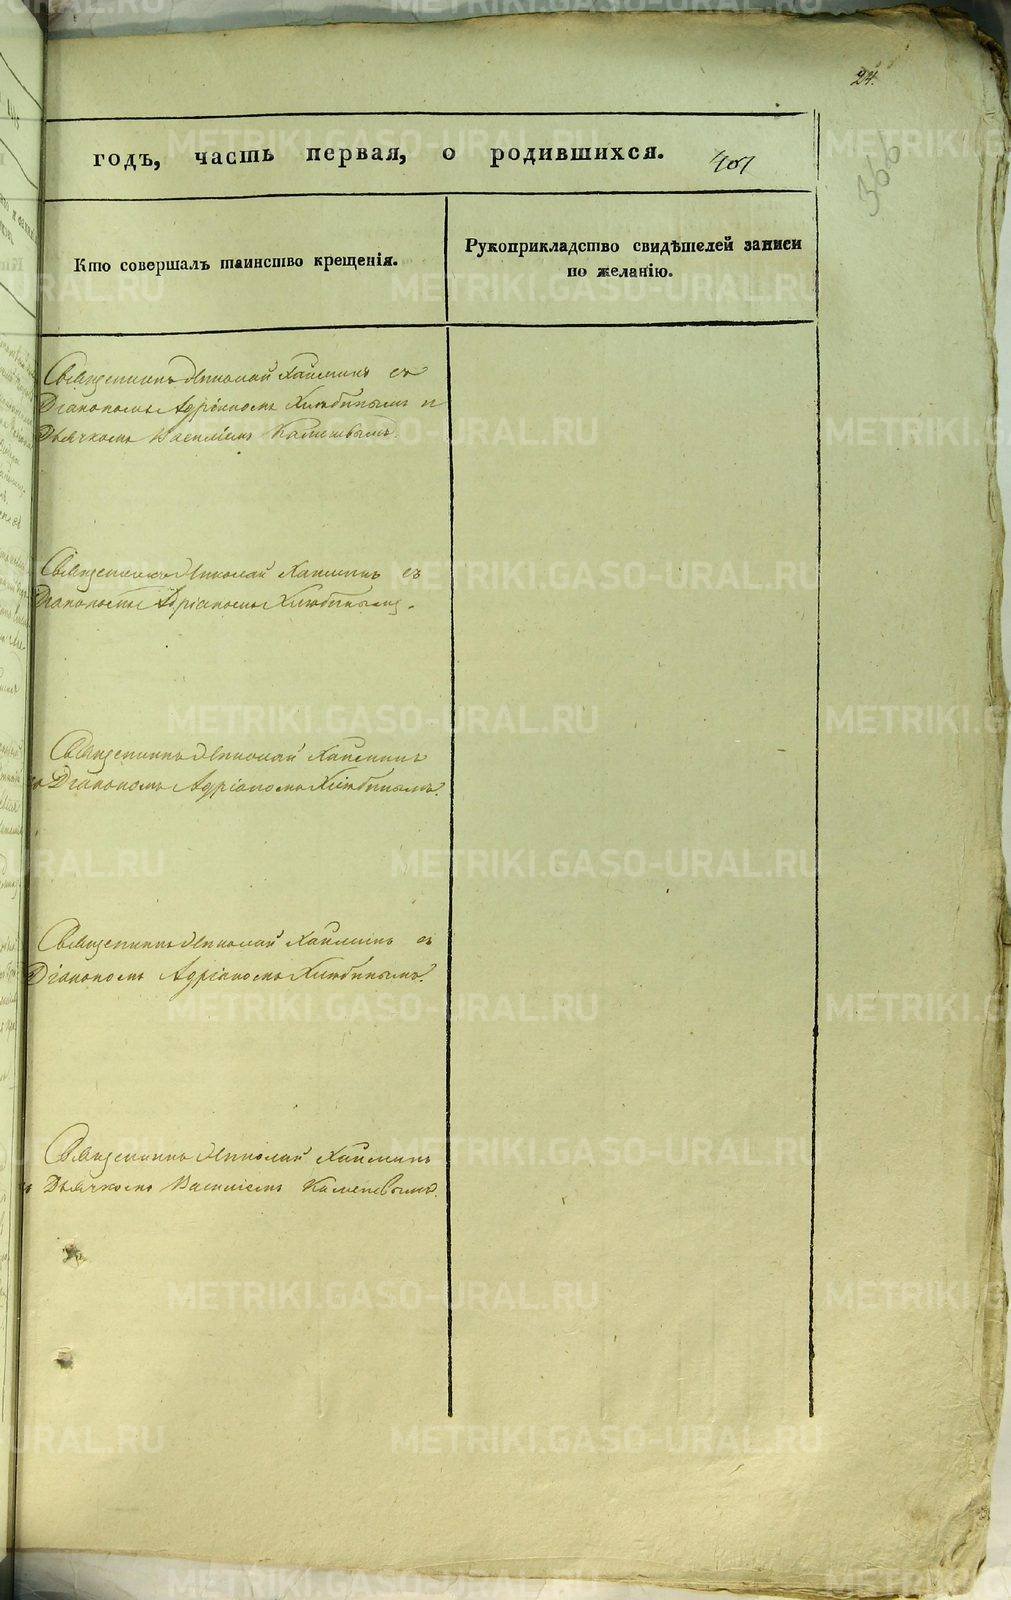 24.
366
годъ, часть первая, о родившихся. 401
Кто совершалъ таинство крещенія.
Рукоприкладство свидѣтелей записи
по желанію.
Священникъ Николай Хапмпнъ съ
Діакономъ Адріаномъ Хлюбинымъ и
Дьячкомъ Василіемъ Каменевымъ.
Священникъ Николай съ
Діакономъ Адріаномъ Хлюбинымъ.
Священникъ Николай
съ Діакономъ Адріаномъ Хлюбинымъ.
Священникъ Николай съ
Діакономъ Адріаномъ Хлюбинымъ.
Священникъ Николай
съ Дьячкомъ Василіемъ Каменевымъ.
METRIKI.GASO-URAL.RU